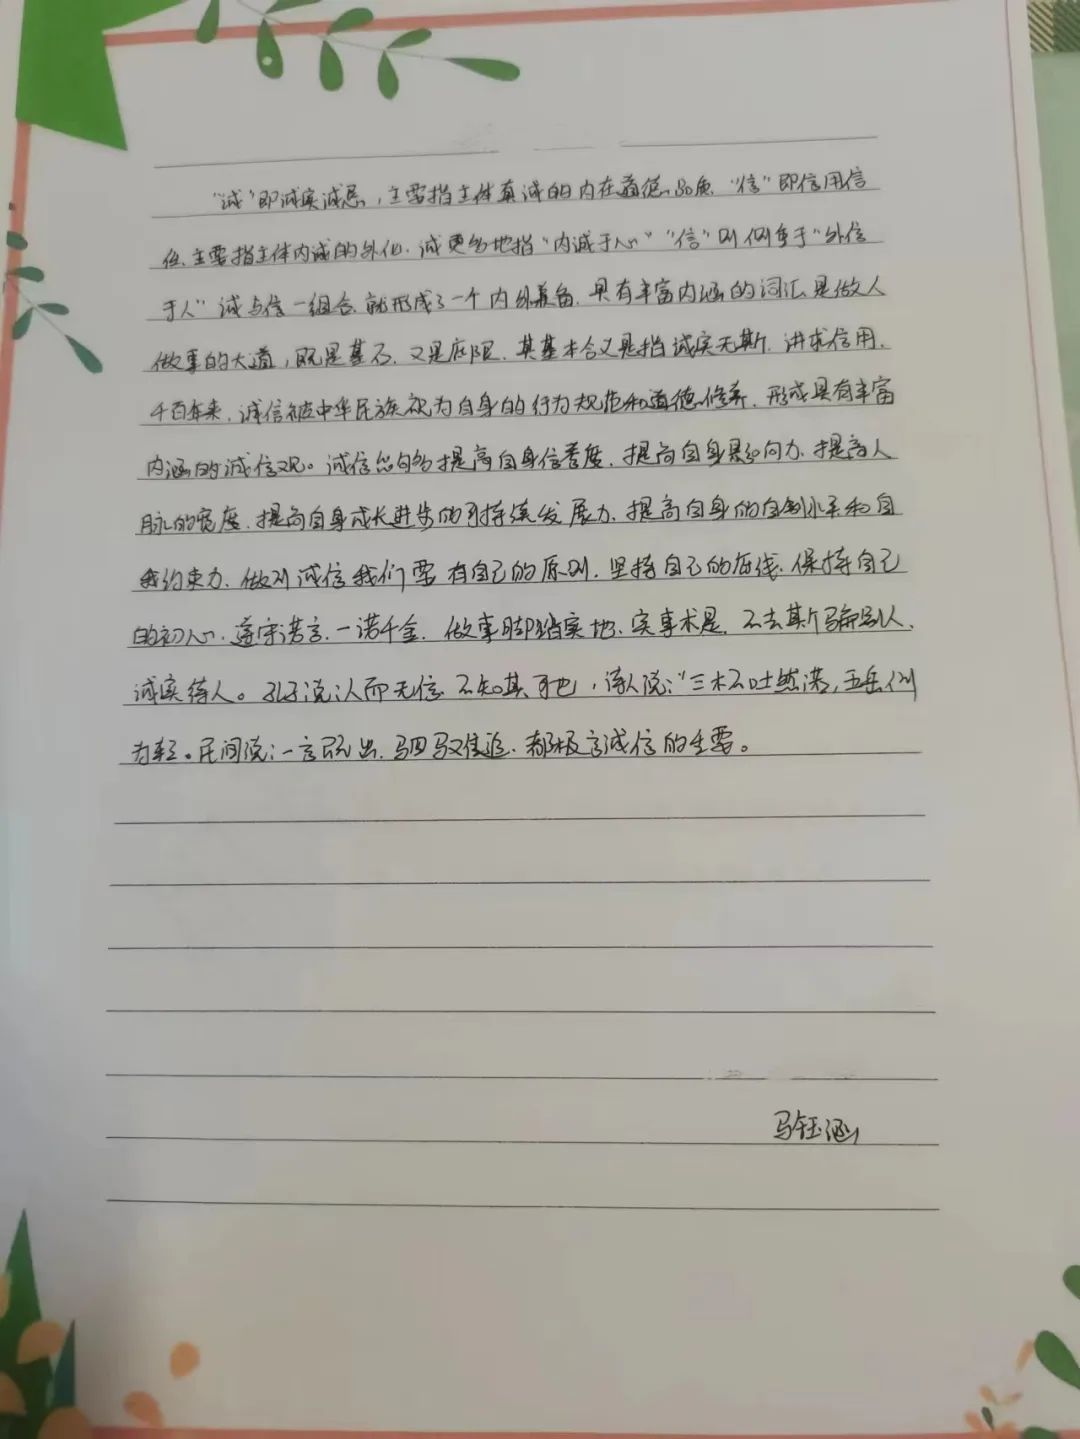 “诚”即诚实诚恳，主要指主体真诚的内在道德品质，“信”即信用信
任，主要指主体内诚的外化，诚更多地指“内诚于心”“信”则侧重于“外信
于人”诚与信一组合，就形成了一个内外兼备，具有丰富内涵的词汇，是做人
做事的大道，既是基石，又是底限，其基本含义是指诚实无欺，讲求信用，
千百年来，诚信被中华民族视为自身的行为规范和道德修养，形成具有丰富
内涵的诚信观。诚信能够提高自身信誉度，提高自身影向力，提高人
脉的宽度，提高自身成长进步的可持续发展力，提高自身的自制水平和自
我约束力，做到诚信我们要有自己的原则，坚持自己的底线，保持自己
的初心，遵守诺言，一诺千金，做事脚踏实地，实事求是，不去欺骗别人，
诚实待人。孔子说：人而无信，不知其可也，诗人说：“三杯吐然诺，五岳倒
为轻。民间说：一言既出，驷马难追，都极言诚信的重要。
马钰涵